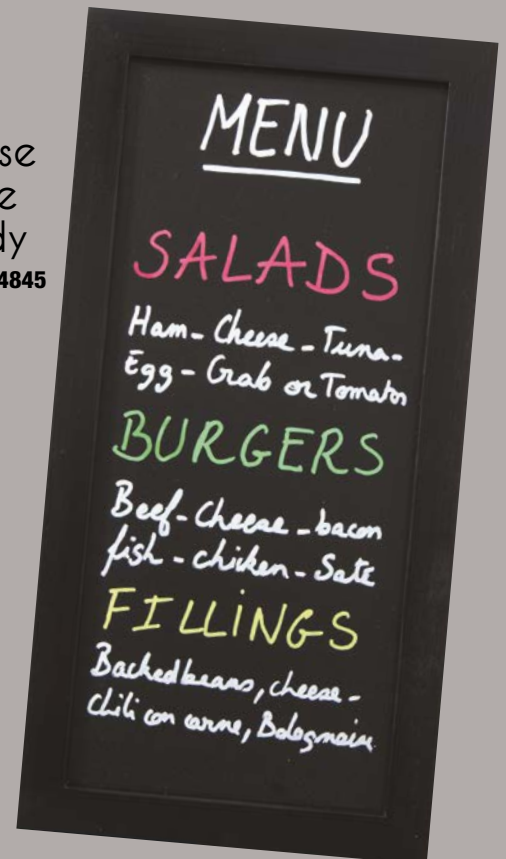 se
e
dy
4845
MENU
SALADS
Ham - Cheese - Tuna -
Egg - Crab or Tomato
BURGERS
Beef - Cheese - bacon
fish - chicken - Sate
FILLINGS
Backed beans, cheese -
Chili con carne, Bolognaise